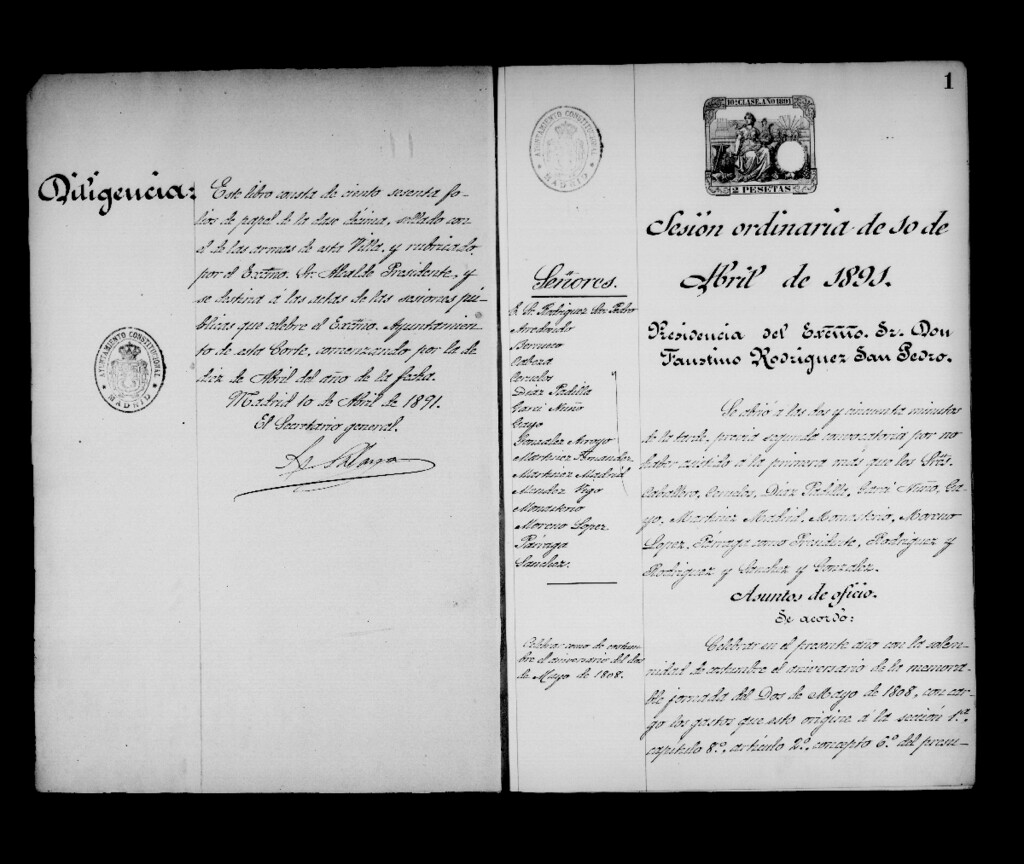 Diligencia:
Este libro consta de ciento sesenta fo-
lios de papel de la clase décima, sellado con
el de las armas de esta Villa, y rubricado
por el Excmo. Sr. Alcalde Presidente, y
se destina á las actas de las sesiones pú-
blicas que celebre el Excmo. Ayuntamien-
to de esta Corte, comenzando por la de
diez de Abril del año de la fecha.
Madrid 10 de Abril de 1891.
El Secretario general.
AYUNTAMIENTO CONSTITUCIONAL
MADRID
1
AYUNTAMIENTO CONSTITUCIONAL
MADRID
10ª CLASE. AÑO 1891
2 PESETAS
Sesión ordinaria de 10 de
Abril de 1891.
Presidencia del Excmo. Sr. Don
Faustino Rodríguez San Pedro.
Señores.
Sr. Rodriguez San Pedro
Arredondo
Cabeza
Díaz Padilla
Garci Nuño
Gayo
Gonzalez Arroyo
Martinez Fernandez
Martinez Madrid
Mendez Vigo
Monasterio
Moreno Lopez
Párraga
Sanchez.
Se abrió á las dos y cincuenta minutos
de la tarde, previa segunda convocatoria por no
haber asistido á la primera más que los Sres.
Caballero, Díaz Padilla, Garci Nuño, Ga-
yo, Martinez Madrid, Monasterio, Moreno
Lopez, Párraga como Presidente, Rodriguez y
Rodriguez y Sanchez y Gonzalez.
Asuntos de oficio.
Se acordó:
Celebrar como de costum-
bre el aniversario del dos
de Mayo de 1808.
Celebrar en el presente año con la solem-
nidad de costumbre el aniversario de la memora-
ble jornada del Dos de Mayo de 1808, con car-
go los gastos que esto origine á la sección 1.ª
capítulo 8.º, artículo 2.º, concepto 6.º del presu-